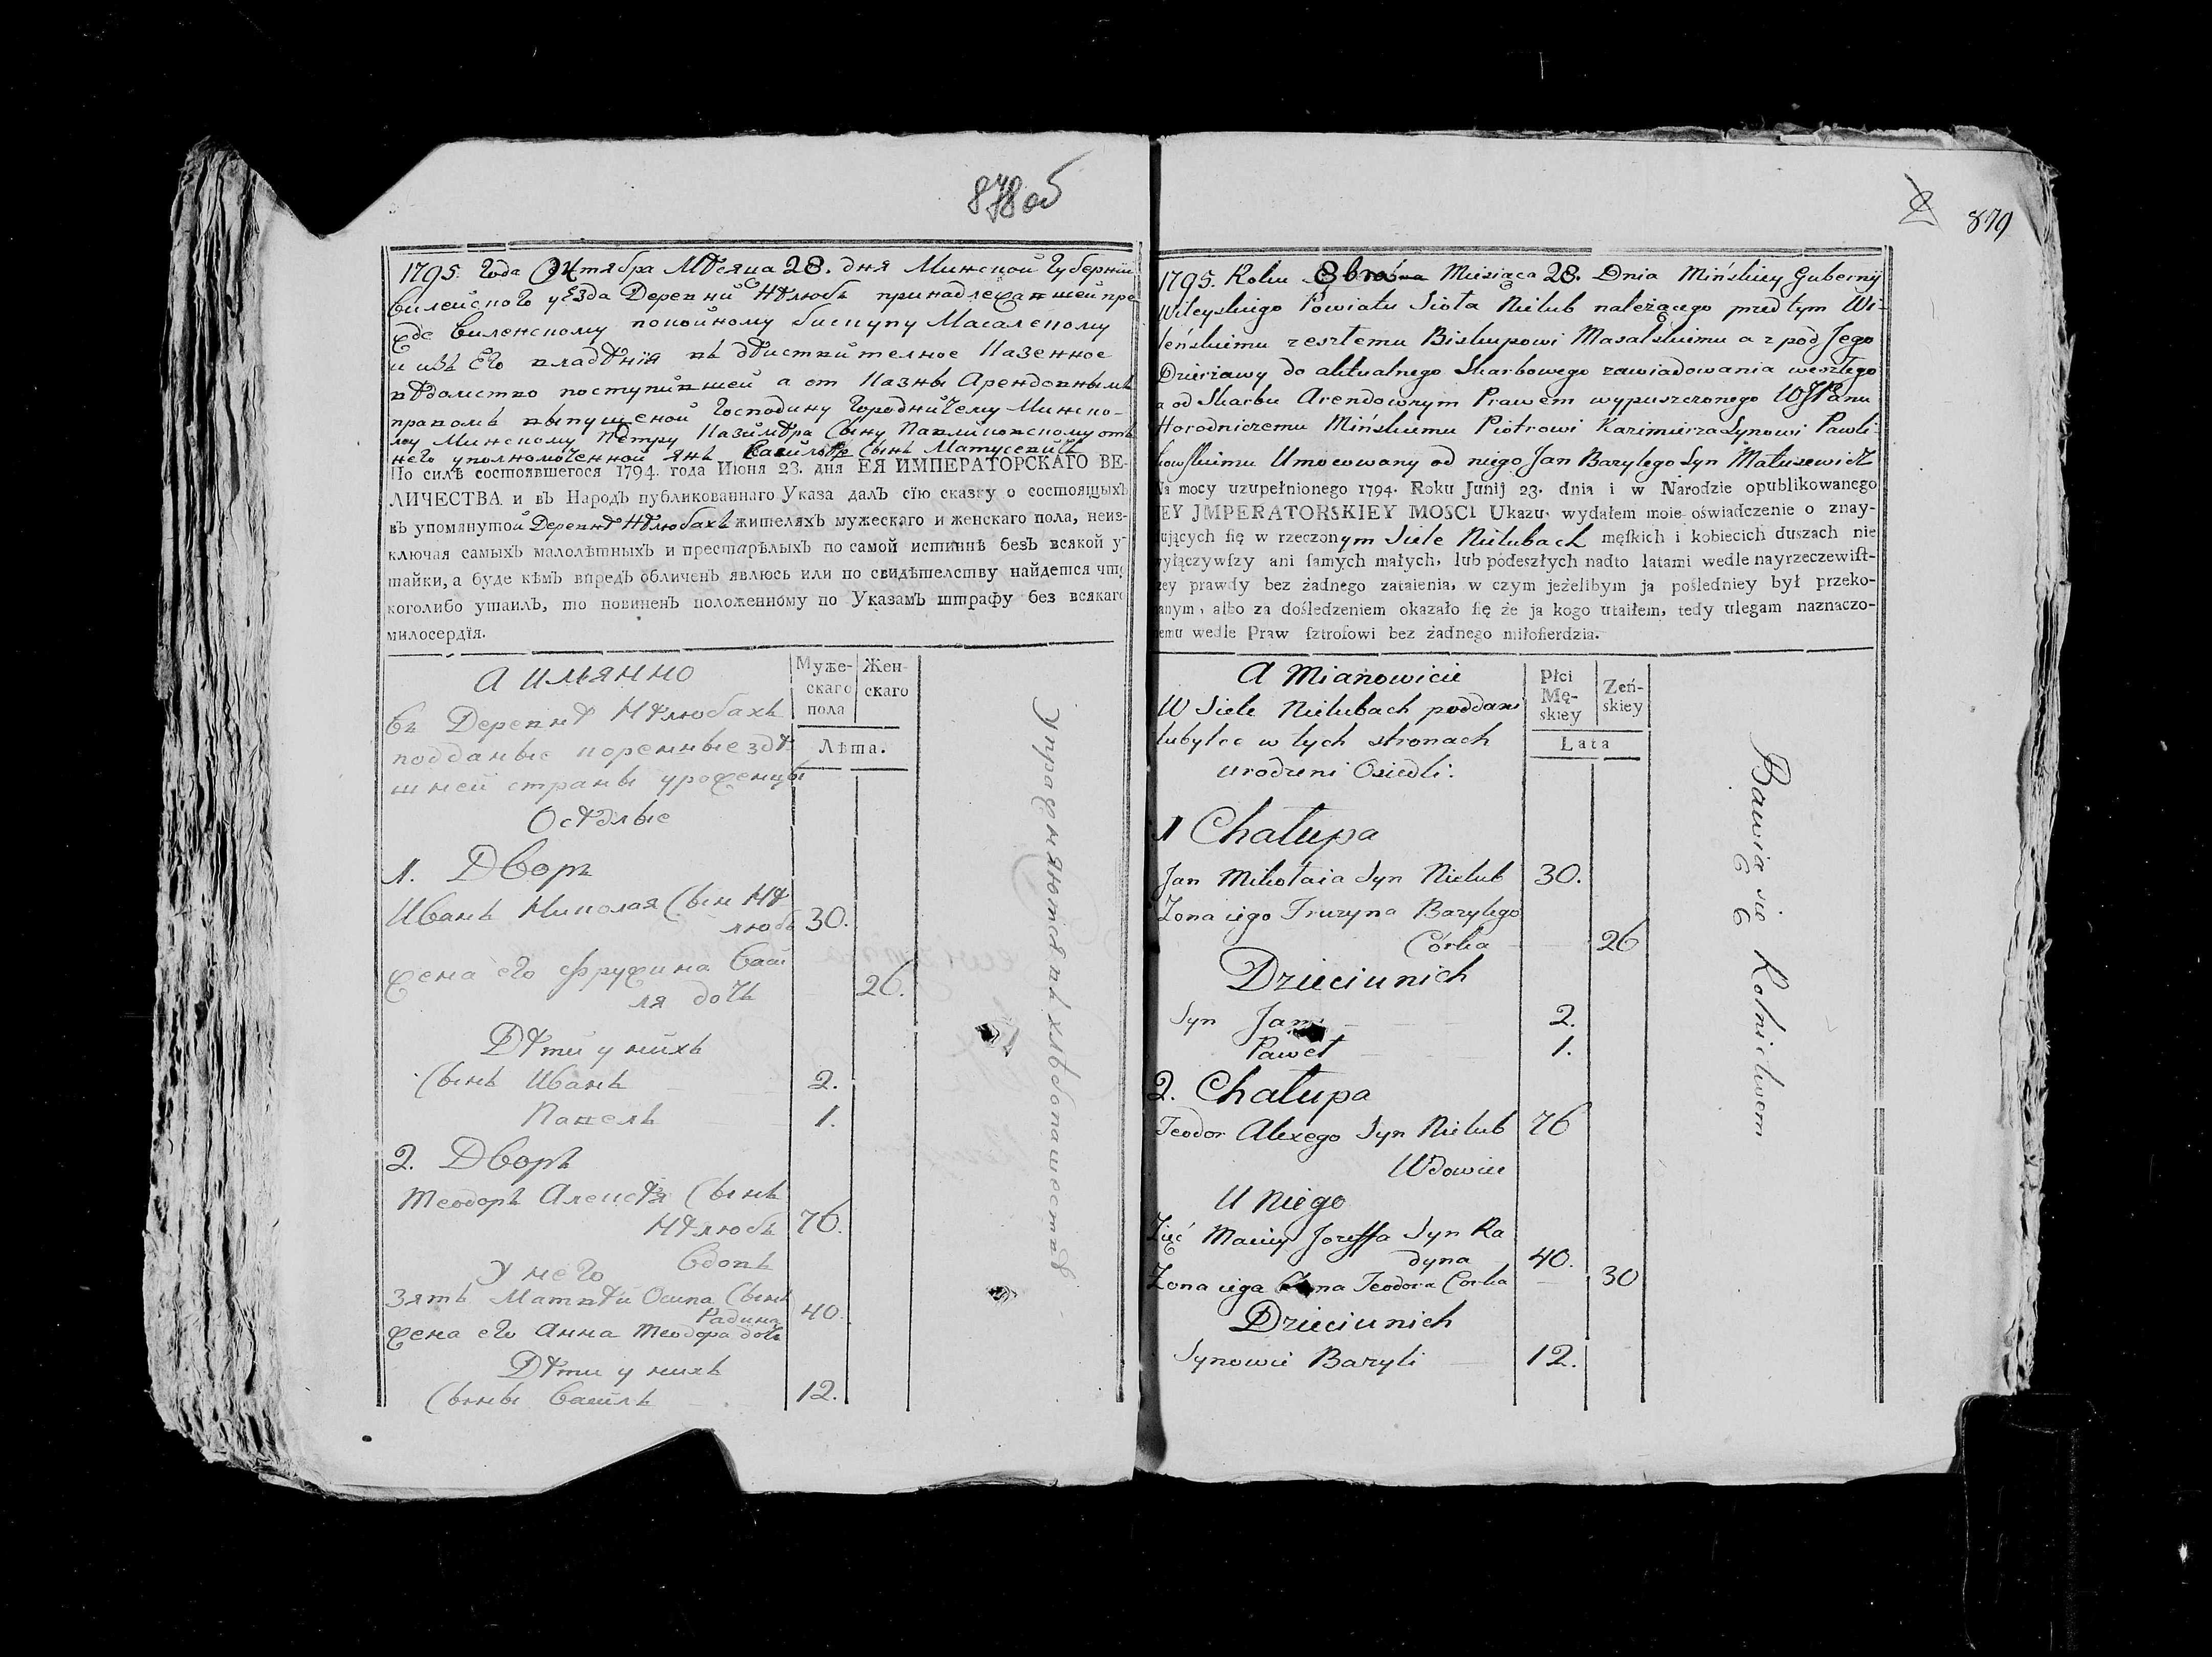 878об
1795. Года Октября Мѣсяца 28. дня Минской Губерніи
Вилейского уѣзда Деревни Нѣлюбъ принадлежавшей пре
жде Виленскому покойному бискупу Масалскому
и изъ Его владѣнія въ дѣиствителное Казенное
вѣдомство поступившей а от Казны Арендовнымъ
правомъ выпущеной Господину Городничему Минско-
му Минскому Петру Казимѣра Сыну Павликовскому отъ
него уполномоченной Янъ Василья Сынъ Матусевичъ
По силѣ состоявшегося 1794. года Июня 23. дня ЕЯ ИМПЕРАТОРСКАГО ВЕ-
ЛИЧЕСТВА и въ Народъ публикованнаго Указа далъ сїю сказку о состоящыхъ
въ упомянутой Деревнѣ Нѣлюбахъ жителяхъ мужескаго и женскаго пола, неиз-
ключая самыхъ малолѣтныхъ и престарѣлыхъ по самой истиннѣ безъ всякой у-
тайки, а буде кѣмъ впредь обличенъ явлюсь или по свидѣтелству найдется что
коголибо утаилъ, то повиненъ положенному по Указамъ штрафу без всякаго
милосердїя.
А имянно
Муже-
скаго
пола
Жен-
скаго
Лѣта.
Въ Деревнѣ Нѣлюбахъ
подданые коренные здѣ
шней страны уроженцы
Осѣдлые
1. Дворъ
Иванъ Николая Сын Нѣ
любъ 30.
жена его Фружина Васи
ля дочь 26.
Дѣти у нихъ
Сынъ Иванъ 2.
Павелъ 1.
2. Дворъ
Теодоръ Алексѣя Сынъ
Нѣлюбъ 76.
Вдовъ
У него
Зять Матвѣй Осипа Сынъ
Радина 40.
жена его Анна Теодора дочь
Дѣти у нихъ
Сыны Василь 12.
Упражняются въ хлѣбопашествѣ
879
1795. Roku 8bra Miesiąca 28. Dnia Mińskiey Gubernij
Wileyskiego Powiatu Sioła Nielub należącego przed tym Wi-
leńskiemu zeszłemu Biskupowi Masalskiemu a z pod Jego
Dzierżawy do aktualnego Skarbowego zawiadowania weszłego
a od Skarbu Arendownym Prawem wypuszczonego WJPanu
Horodniczemu Mińskiemu Piotrowi Kazimierza Synowi Pawli-
kowskiemu Umocowany od niego Jan Bazylego Syn Matusewicz
Na mocy uzupełnionego 1794. Roku Junij 23. dnia i w Narodzie opublikowanego
JEY JMPERATORSKIEY MOSCI Ukazu, wydałem moie oświadczenie o znay-
dujących fię w rzeczonym Siele Nielubach męfkich i kobiecich duszach nie
wyłączywfzy ani famych małych, lub podeszłych nadto latami wedle nayrzeczewift-
zey prawdy bez żadnego zataienia, w czym jeżelibym ja pofledniey był przeko-
nanym, albo za dośledzeniem okazało fię że ja kogo utaiłem, tedy ulegam naznaczo-
nemu wedle Praw fztrofowi bez żadnego miłofierdzia.
A Mianowicie
Płci
Mę-
skiey
Zeń-
skiey
Lata
W Siele Nielubach poddani
tubylce w tych stronach
urodzeni Osiedli.
1 Chałupa
Jan Mikołaia Syn Nielub 30.
Żona iego Fruzyna Bazylego
Córka 26
Dzieci u nich
Syn Jan 2.
Paweł 1.
2. Chałupa
Teodor Alexego Syn Nielub 76
Wdowiec
U Niego
Zięć Maciey Jozeffa Syn Ra
dyna 40.
Żona iego Anna Teodora Corka 30
Dzieci u nich
Synowie Bazyli 12.
Bawią się Rolnictwem